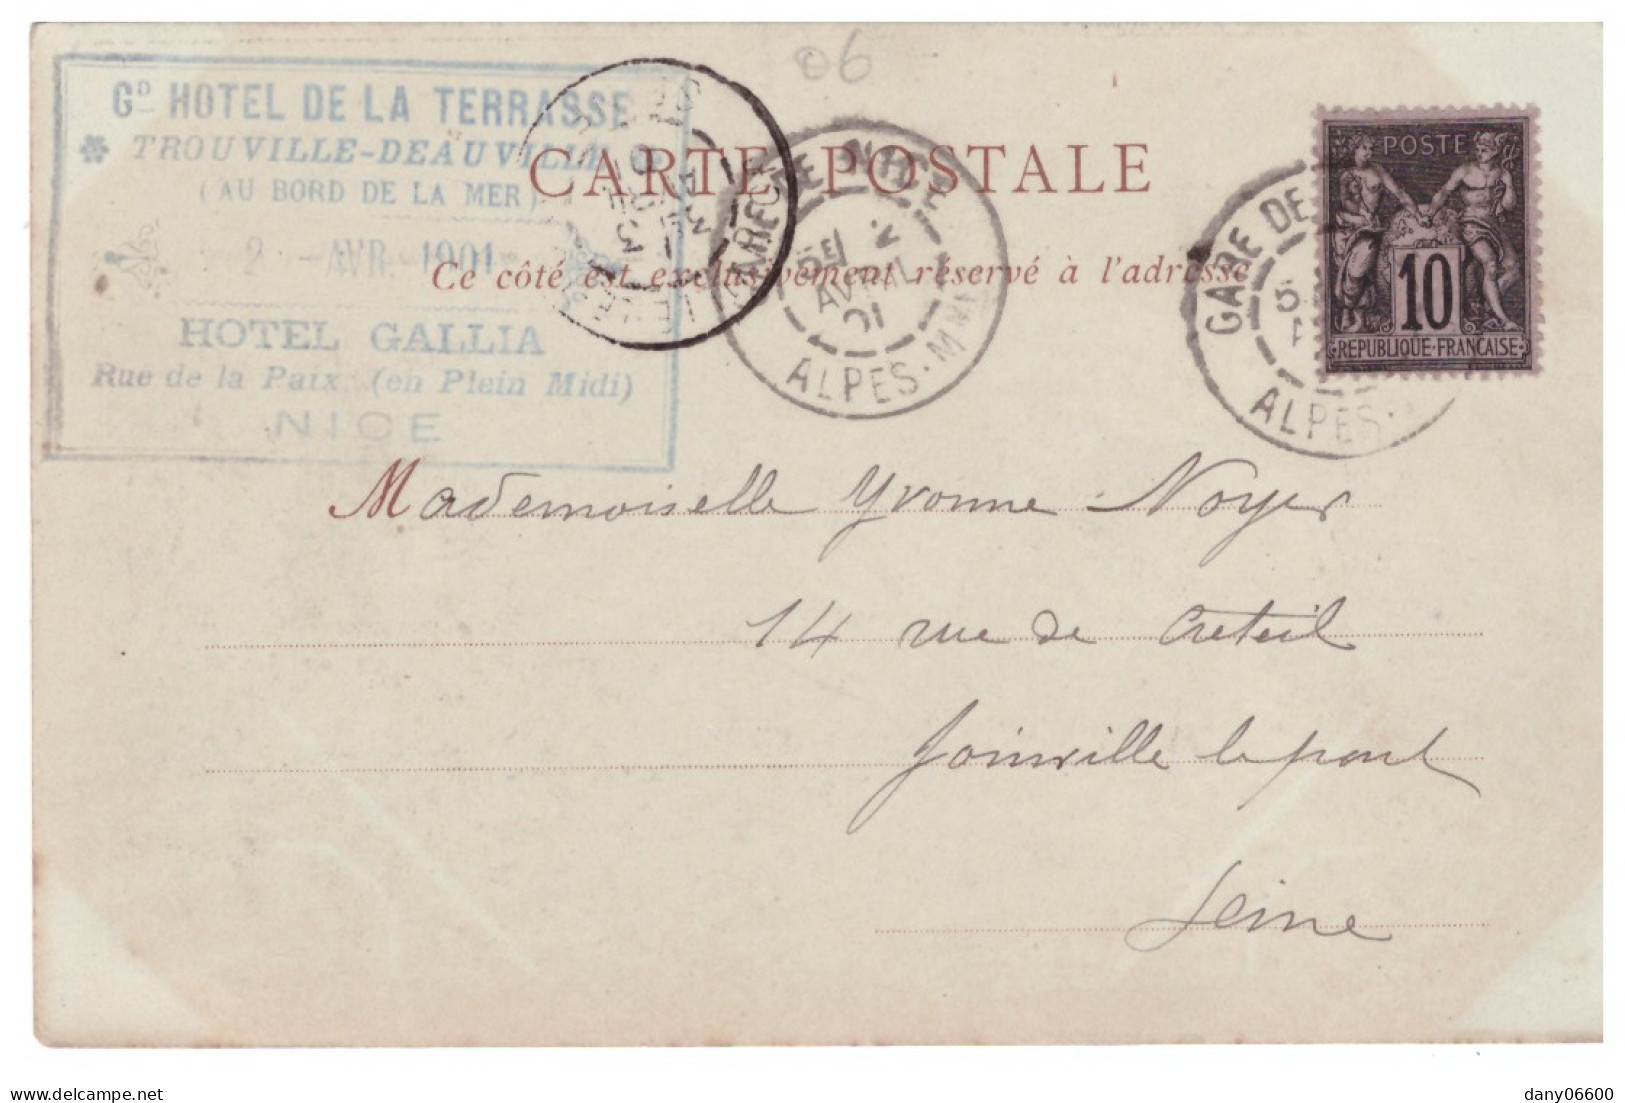 06
Gᴰ HOTEL DE LA TERRASSE
TROUVILLE-DEAUVILLE
(AU BORD DE LA MER)
2 -AVR. 1901
HOTEL GALLIA
Rue de la Paix (en Plein Midi)
NICE
CARTE POSTALE
Ce côté est exclusivement réservé à l'adresse
GARE DE NICE
2
AVRIL
01
ALPES-MMES
GARE DE
ALPES
POSTE
10
REPUBLIQUE·FRANCAISE
Mademoiselle Yvonne Noyer
14 rue de Creteil
Joinville le pont
Seine
delcampe.net
dany06600